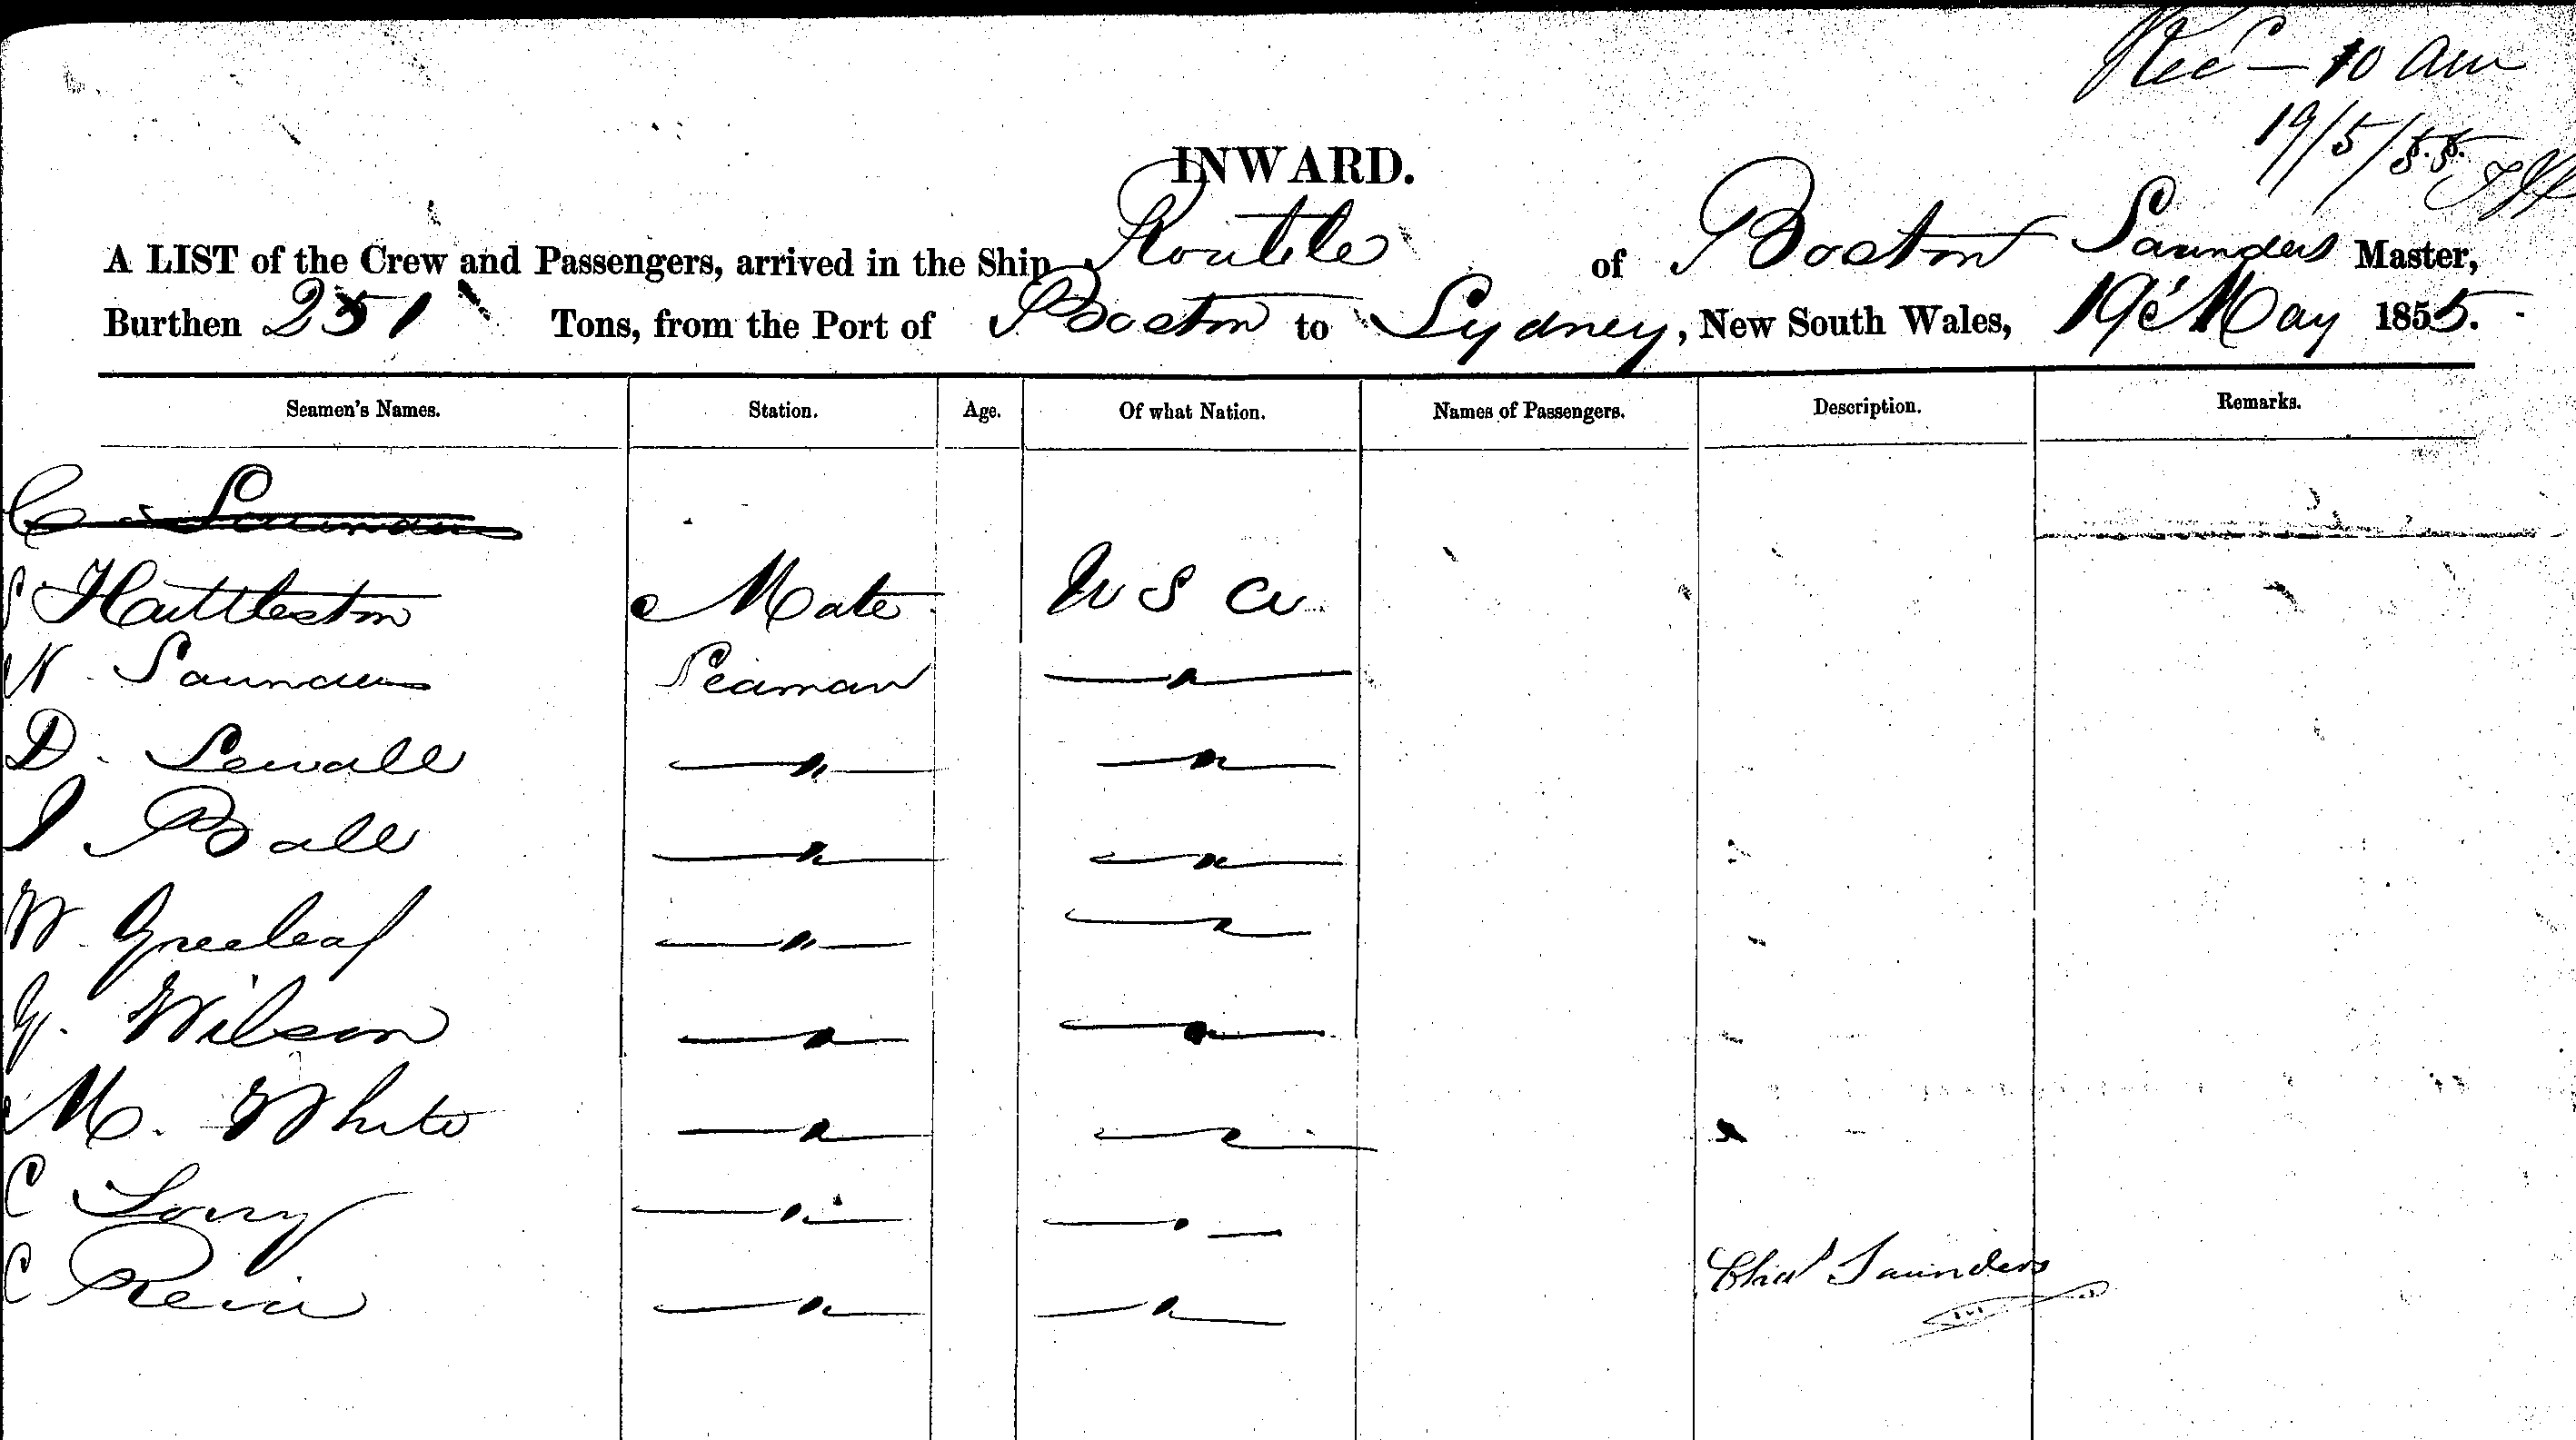 Rec^d — 10 am
19/5/55
INWARD.
A LIST of the Crew and Passengers, arrived in the Ship Routele of Boston Saunders Master,
Burthen 251 Tons, from the Port of Boston to Sydney, New South Wales, 19th May 1855.
Seamen's Names. Station. Age. Of what Nation. Names of Passengers. Description. Remarks.
C. Saunders
S Huttleston Mate U S A
N. Saunders Seaman — " —
D. Sewall — " — — " —
J Ball — " — — " —
W. Greeleaf — " — — " —
G. Wilson — " — — " —
M. White — " — — " —
C Lorry — " — — " —
C — " — — " —
Chas Saunders